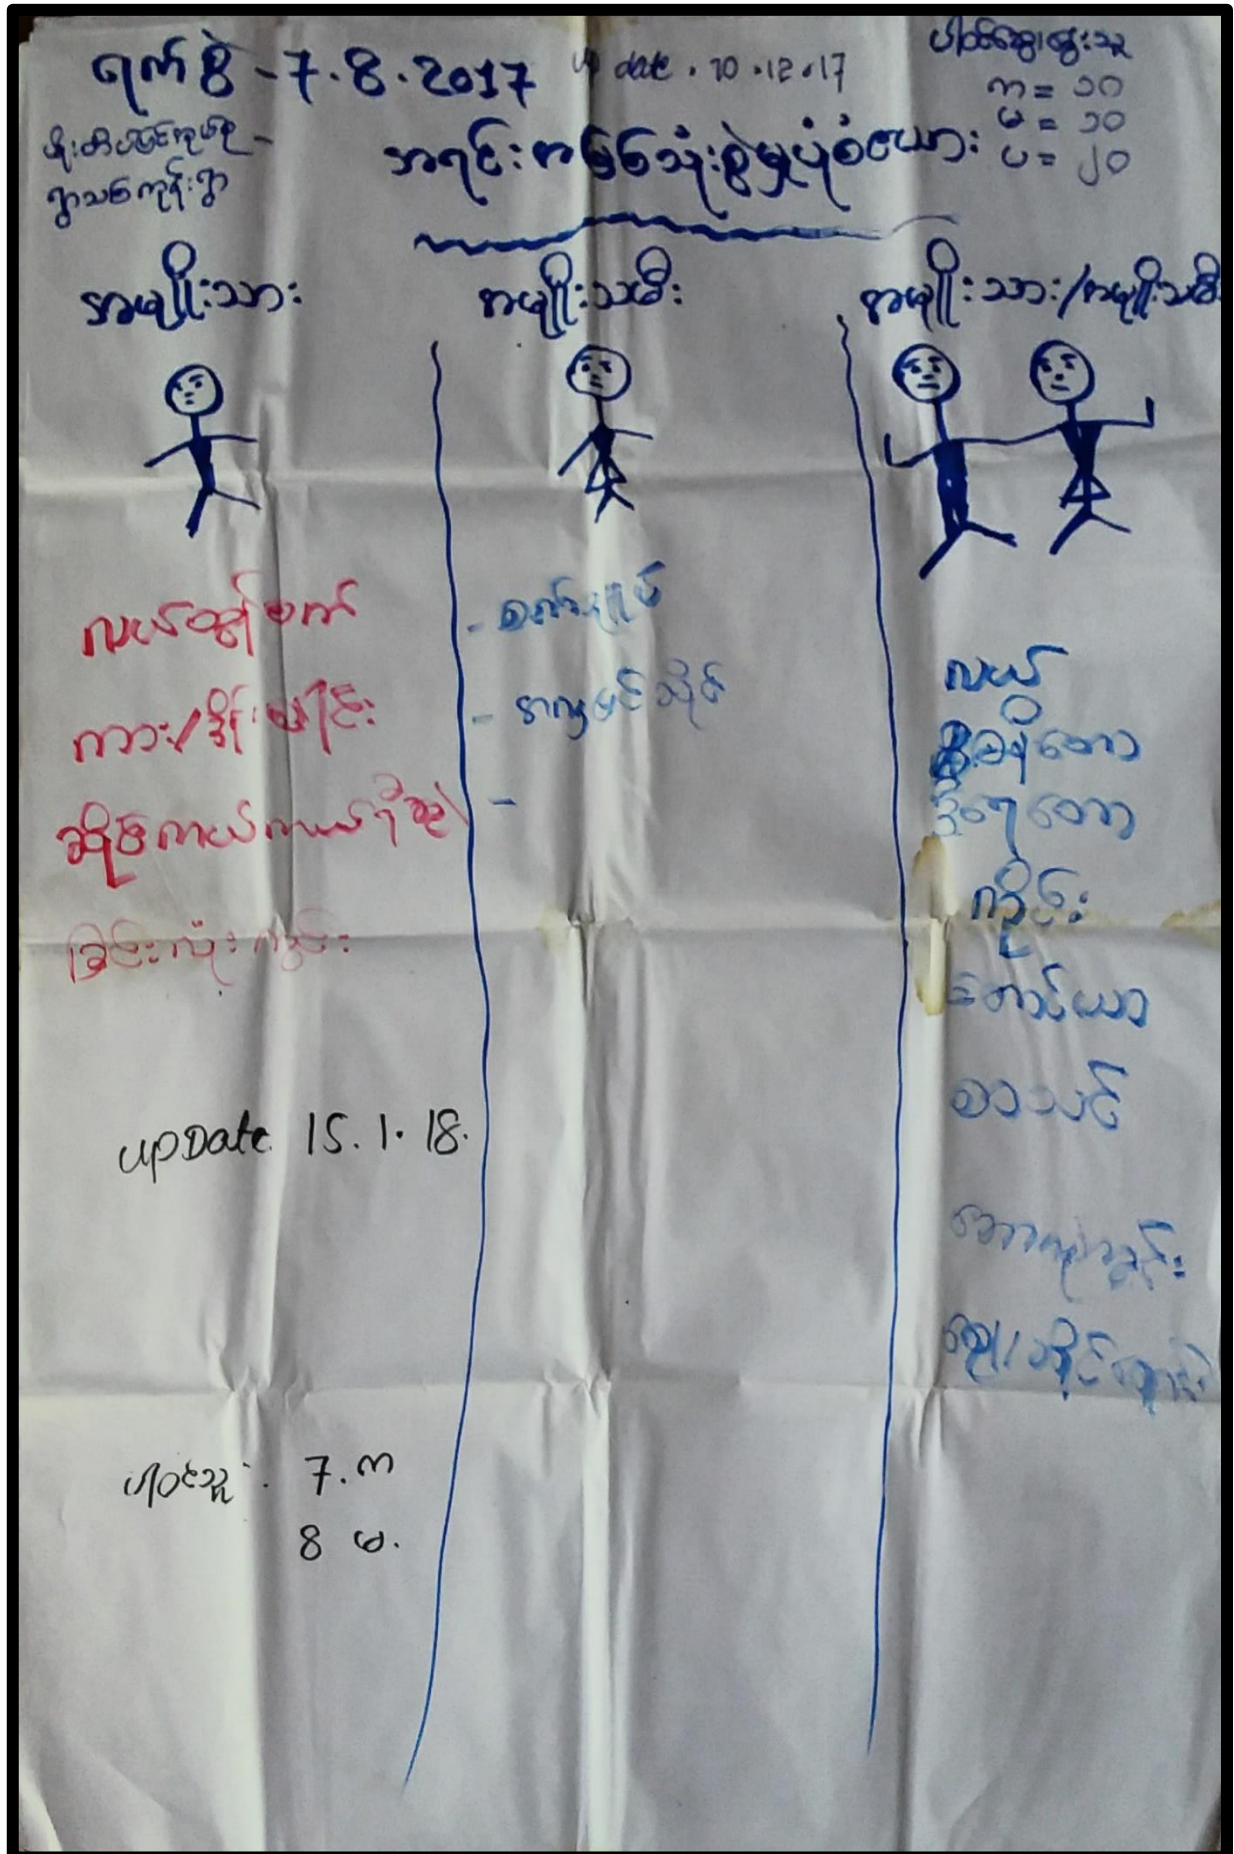 ရက်စွဲ - 7.8.2017
up date . 10 .12.17
ပါဝင်ဆွေးနွေးသူ
က = ၁၀
မ = ၁၀
ပ = ၂၀
ရွာသစ်ကုန်းရွာ
အရင်းအမြစ်သုံးစွဲမှုပုံစံဇယား
အမျိုးသား
အမျိုးသမီး
အမျိုးသား/အမျိုးသမီး
လယ်ထွန်စက်
ကား/
ဆိုင်ကယ်
ခြင်းလုံးကွင်း
- စက်ချုပ်
- အလှပြင်ဆိုင်
-
လယ်
ဓနိတော
ဒီရေတော
ကိုင်း
တောင်ယာ
စာသင်
ဘောလုံးကွင်း
upDate 15.1.18.
ပါဝင်သူ . 7. က
8 မ.